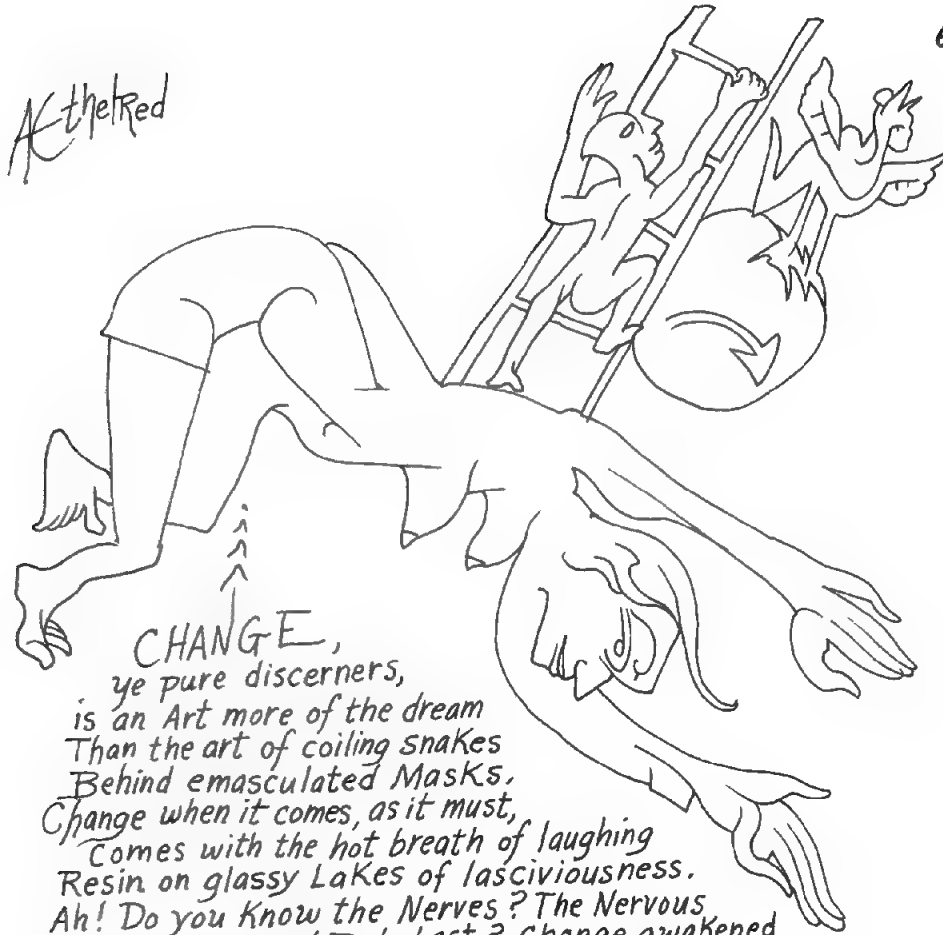 AEthelRed
CHANGE,
ye pure discerners,
is an Art more of the dream
Than the art of coiling snakes
Behind emasculated Masks.
Change when it comes, as it must,
Comes with the hot breath of laughing
Resin on glassy Lakes of lasciviousness.
Ah! Do you Know the Nerves? The Nervous
? Change awakened